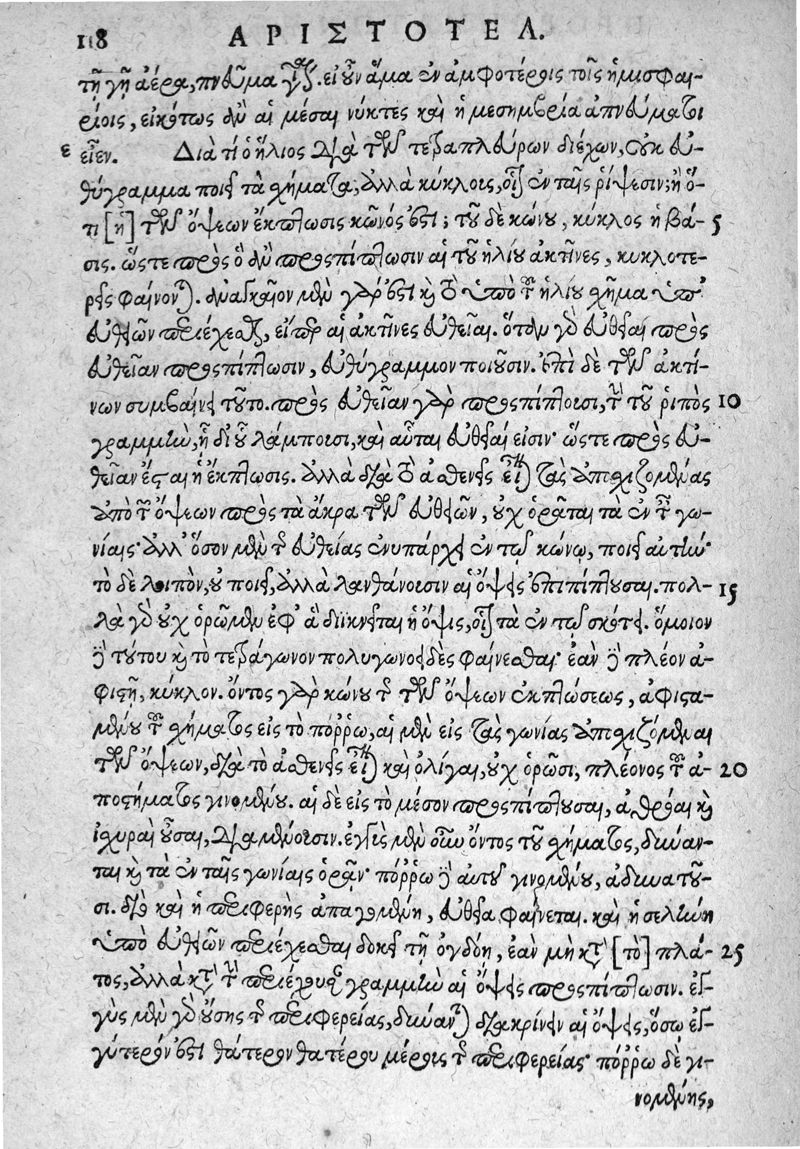 118 ΑΡΙΣΤΟΤΕΛ.
τῇ γῇ ἀέρα, πνεῦμα γίνεται. εἰ οὖν ἅμα ἐν ἀμφοτέροις τοῖς ἡμισφαι-
ρίοις, εἰκότως ἂν αἱ μέσαι νύκτες καὶ ἡ μεσημβρία ἀπνεύματοι
ε εἶεν. Διὰ τί ὁ ἥλιος διὰ τῶν τετραπλεύρων διέχων, οὐκ εὐ-
θύγραμμα ποιεῖ τὰ σχήματα, ἀλλὰ κύκλοις, οἷον ἐν ταῖς ῥίψεσιν; ἢ ὅ-
τι [ἡ] τῶν ὄψεων ἔκπτωσις κῶνός ἐστι; τοῦ δὲ κώνου, κύκλος ἡ βά- 5
σις. ὥστε πρὸς ὃ ἂν προσπίπτωσιν αἱ τοῦ ἡλίου ἀκτῖνες, κυκλοτε-
ρεῖς φαίνονται. ἀναγκαῖον μὲν γάρ ἐστι καὶ τὸ ὑπὸ τοῦ ἡλίου σχῆμα ὑπ'
εὐθειῶν περιέχεσθαι, εἴπερ αἱ ἀκτῖνες εὐθεῖαι. ὅταν γὰρ εὐθεῖαι πρὸς
εὐθεῖαν προσπίπτωσιν, εὐθύγραμμον ποιοῦσιν. ἐπὶ δὲ τῶν ἀκτί-
νων συμβαίνει τοῦτο. πρὸς εὐθεῖαν γὰρ προσπίπτουσι, τὴν τοῦ ῥιπὸς 10
γραμμὴν, ᾗ διου λάμπουσι, καὶ αὗται εὐθεῖαί εἰσιν· ὥστε πρὸς εὐ-
θεῖαν ἔσται ἡ ἔκπτωσις. ἀλλὰ διὰ τὸ ἀσθενεῖς εἶναι τὰς ἀποσχιζομένας
ἀπὸ τῶν ὄψεων πρὸς τὰ ἄκρα τῶν εὐθειῶν, οὐχ ὁρᾶται τὰ ἐν ταῖς γω-
νίαις· ἀλλ' ὅσον μὲν τῆς εὐθείας ἐνυπάρχει ἐν τῷ κώνῳ, ποιεῖ αὐτήν·
τὸ δὲ λοιπὸν, οὐ ποιεῖ, ἀλλὰ λανθάνουσιν αἱ ὄψεις ἐπιπίπτουσαι. πολ- 15
λὰ γὰρ οὐχ ὁρῶμεν ἐφ' ἃ διϊκνεῖται ἡ ὄψις, οἷον τὰ ἐν τῷ σκότει. ὅμοιον
δὲ τούτου καὶ τὸ τετράγωνον πολυγωνοειδὲς φαίνεσθαι· ἐὰν δὲ πλέον ἀ-
φιστῇ, κύκλον. ὄντος γὰρ κώνου τῆς τῶν ὄψεων ἐκπτώσεως, ἀφιστα-
μένου τοῦ σχήματος εἰς τὸ πόῤῥω, αἱ μὲν εἰς τὰς γωνίας ἀποσχιζόμεναι
τῶν ὄψεων, διὰ τὸ ἀσθενεῖς εἶναι καὶ ὀλίγαι, οὐχ ὁρῶσι, πλέονος τοῦ ἀ- 20
ποστήματος γινομένου. αἱ δὲ εἰς τὸ μέσον προσπίπτουσαι, ἀθρόαι καὶ
ἰσχυραὶ οὖσαι, διαμένουσιν. ἐγγὺς μὲν οὖν ὄντος τοῦ σχήματος, δύναν-
ται καὶ τὰ ἐν ταῖς γωνίαις ὁρᾶν· πόῤῥω δὲ αὐτοῦ γινομένου, ἀδυνατοῦ-
σι. διὸ καὶ ἡ περιφερὴς ἀπαγομένη, εὐθεῖα φαίνεται. καὶ ἡ σελήνη
ὑπὸ εὐθειῶν περιέχεσθαι δοκεῖ τῇ ὀγδόῃ, ἐὰν μὴ κατὰ [τὸ] πλά- 25
τος, ἀλλὰ κατὰ τὴν περιέχουσαν γραμμὴν αἱ ὄψεις προσπίπτωσιν. ἐγ-
γὺς μὲν γὰρ οὔσης τῆς περιφερείας, δύνανται διακρίνειν αἱ ὄψεις, ὅσῳ ἐγ-
γύτερόν ἐστι θάτερον θατέρου μέρος τῆς περιφερείας· πόῤῥω δὲ γι-
νομένης,